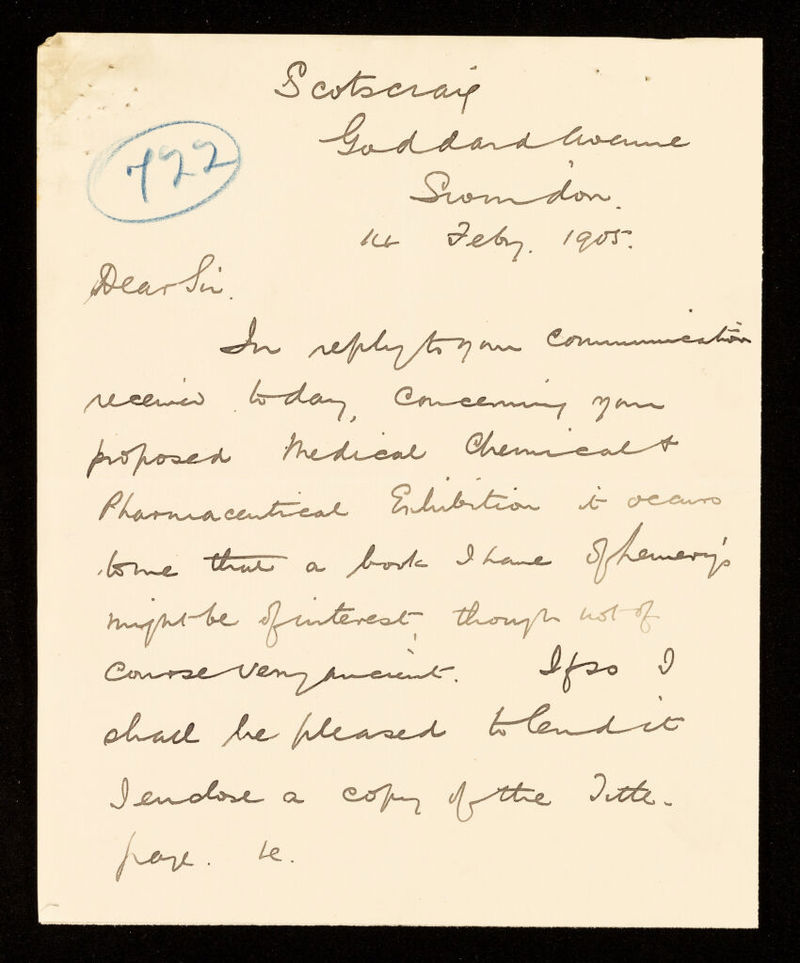 Scotscraig
Goddard Avenue
Swindon.
722
14 Feby. 1905.
Dear Sir.
In reply to your communication
received today, concerning your
proposed Medical Chemical &
Pharmaceutical Exhibition it occurs
to me that a book I have of Lemery's
might be of interest, though not of
course very ancient. If so I
shall be pleased to lend it
I enclose a copy of the Title-
page. &c.